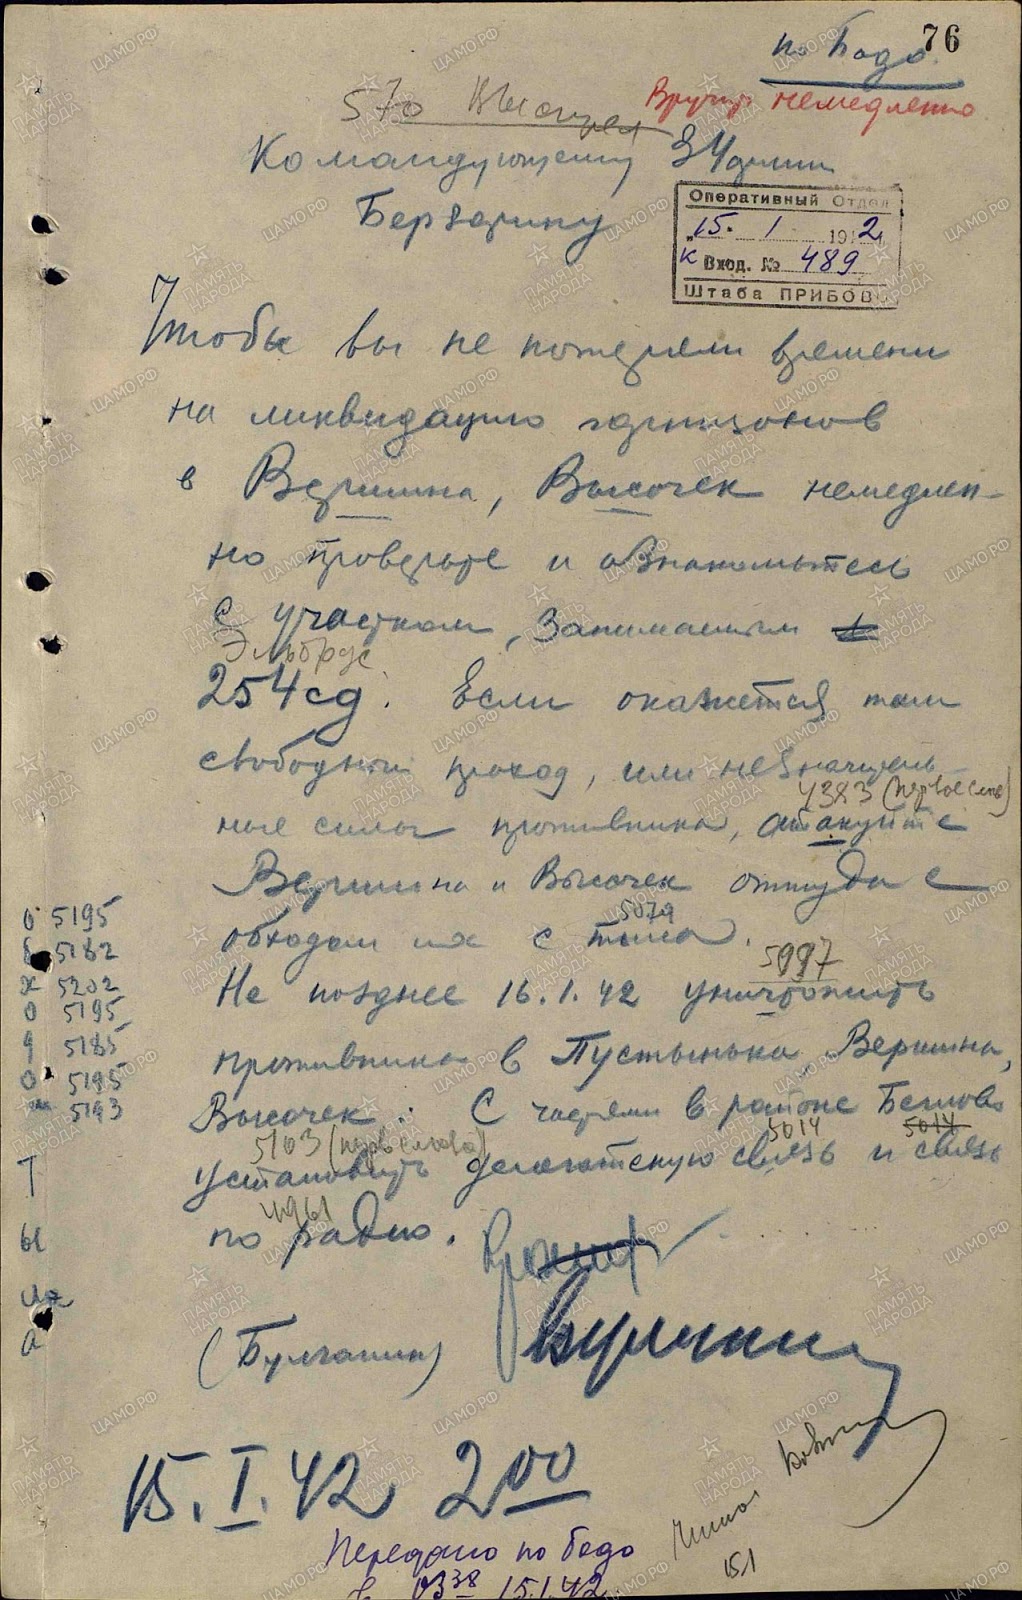 76
по Бодо
Вручить немедленно
570 Выстрел
Командующему 34 армии
Берзарину
Оперативный Отдел
„15. 1 1942
к Вход. № 489
Штаба ПРИБОВО
Чтобы вы не потеряли времени
на ликвидацию гарнизонов
в Вершина, Высочек немедлен-
но проверьте и ознакомьтесь
с участком, занимаемым
Эльбрус
254 сд. Если окажется там
свободный проход, или незначитель-
4383 (первое слово)
ные силы противника, атакуйте
Вершина и Высочек оттуда с
5079
обходом их с тыла.
5997
Не позднее 16.1.42 уничтожить
противника в Пустынька, Вершина,
Высочек. С частями в районе Беглово
5103 (первое слово) 5014 5014
установить делегатскую связь и связь
4961
по радио.
(Булганин)
15.I.42 2 00
Передано по бодо
в 0338 15.1.42
Читал
15.1
о 5195
б 5182
х 5202
о 5195
д 5185
о 5195
м 5193
Т
ы
ла